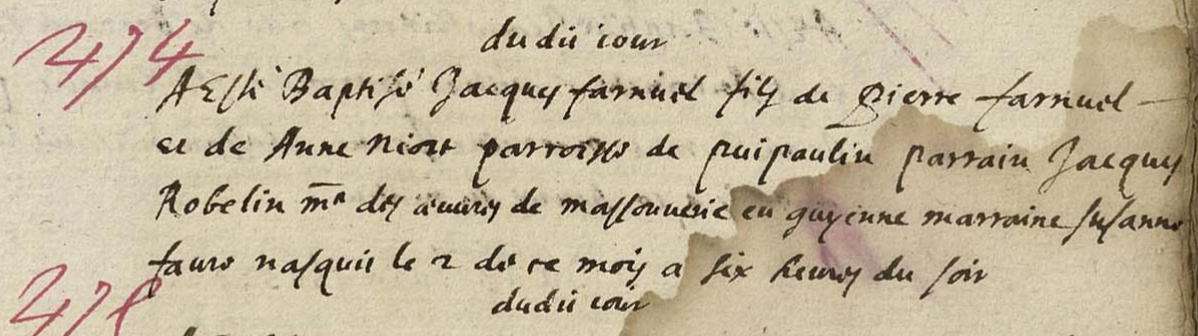 474
dudit iour
A Esté Baptisé Jacques farnuel fils de Pierre farnuel
et de Anne niort parroisse de puipaulin parrain Jacques
Robelin mre des œuures de massonnerie en guyenne marraine susanne
faure nasquit le 2 de ce mois a six heures du soir
dudit iour